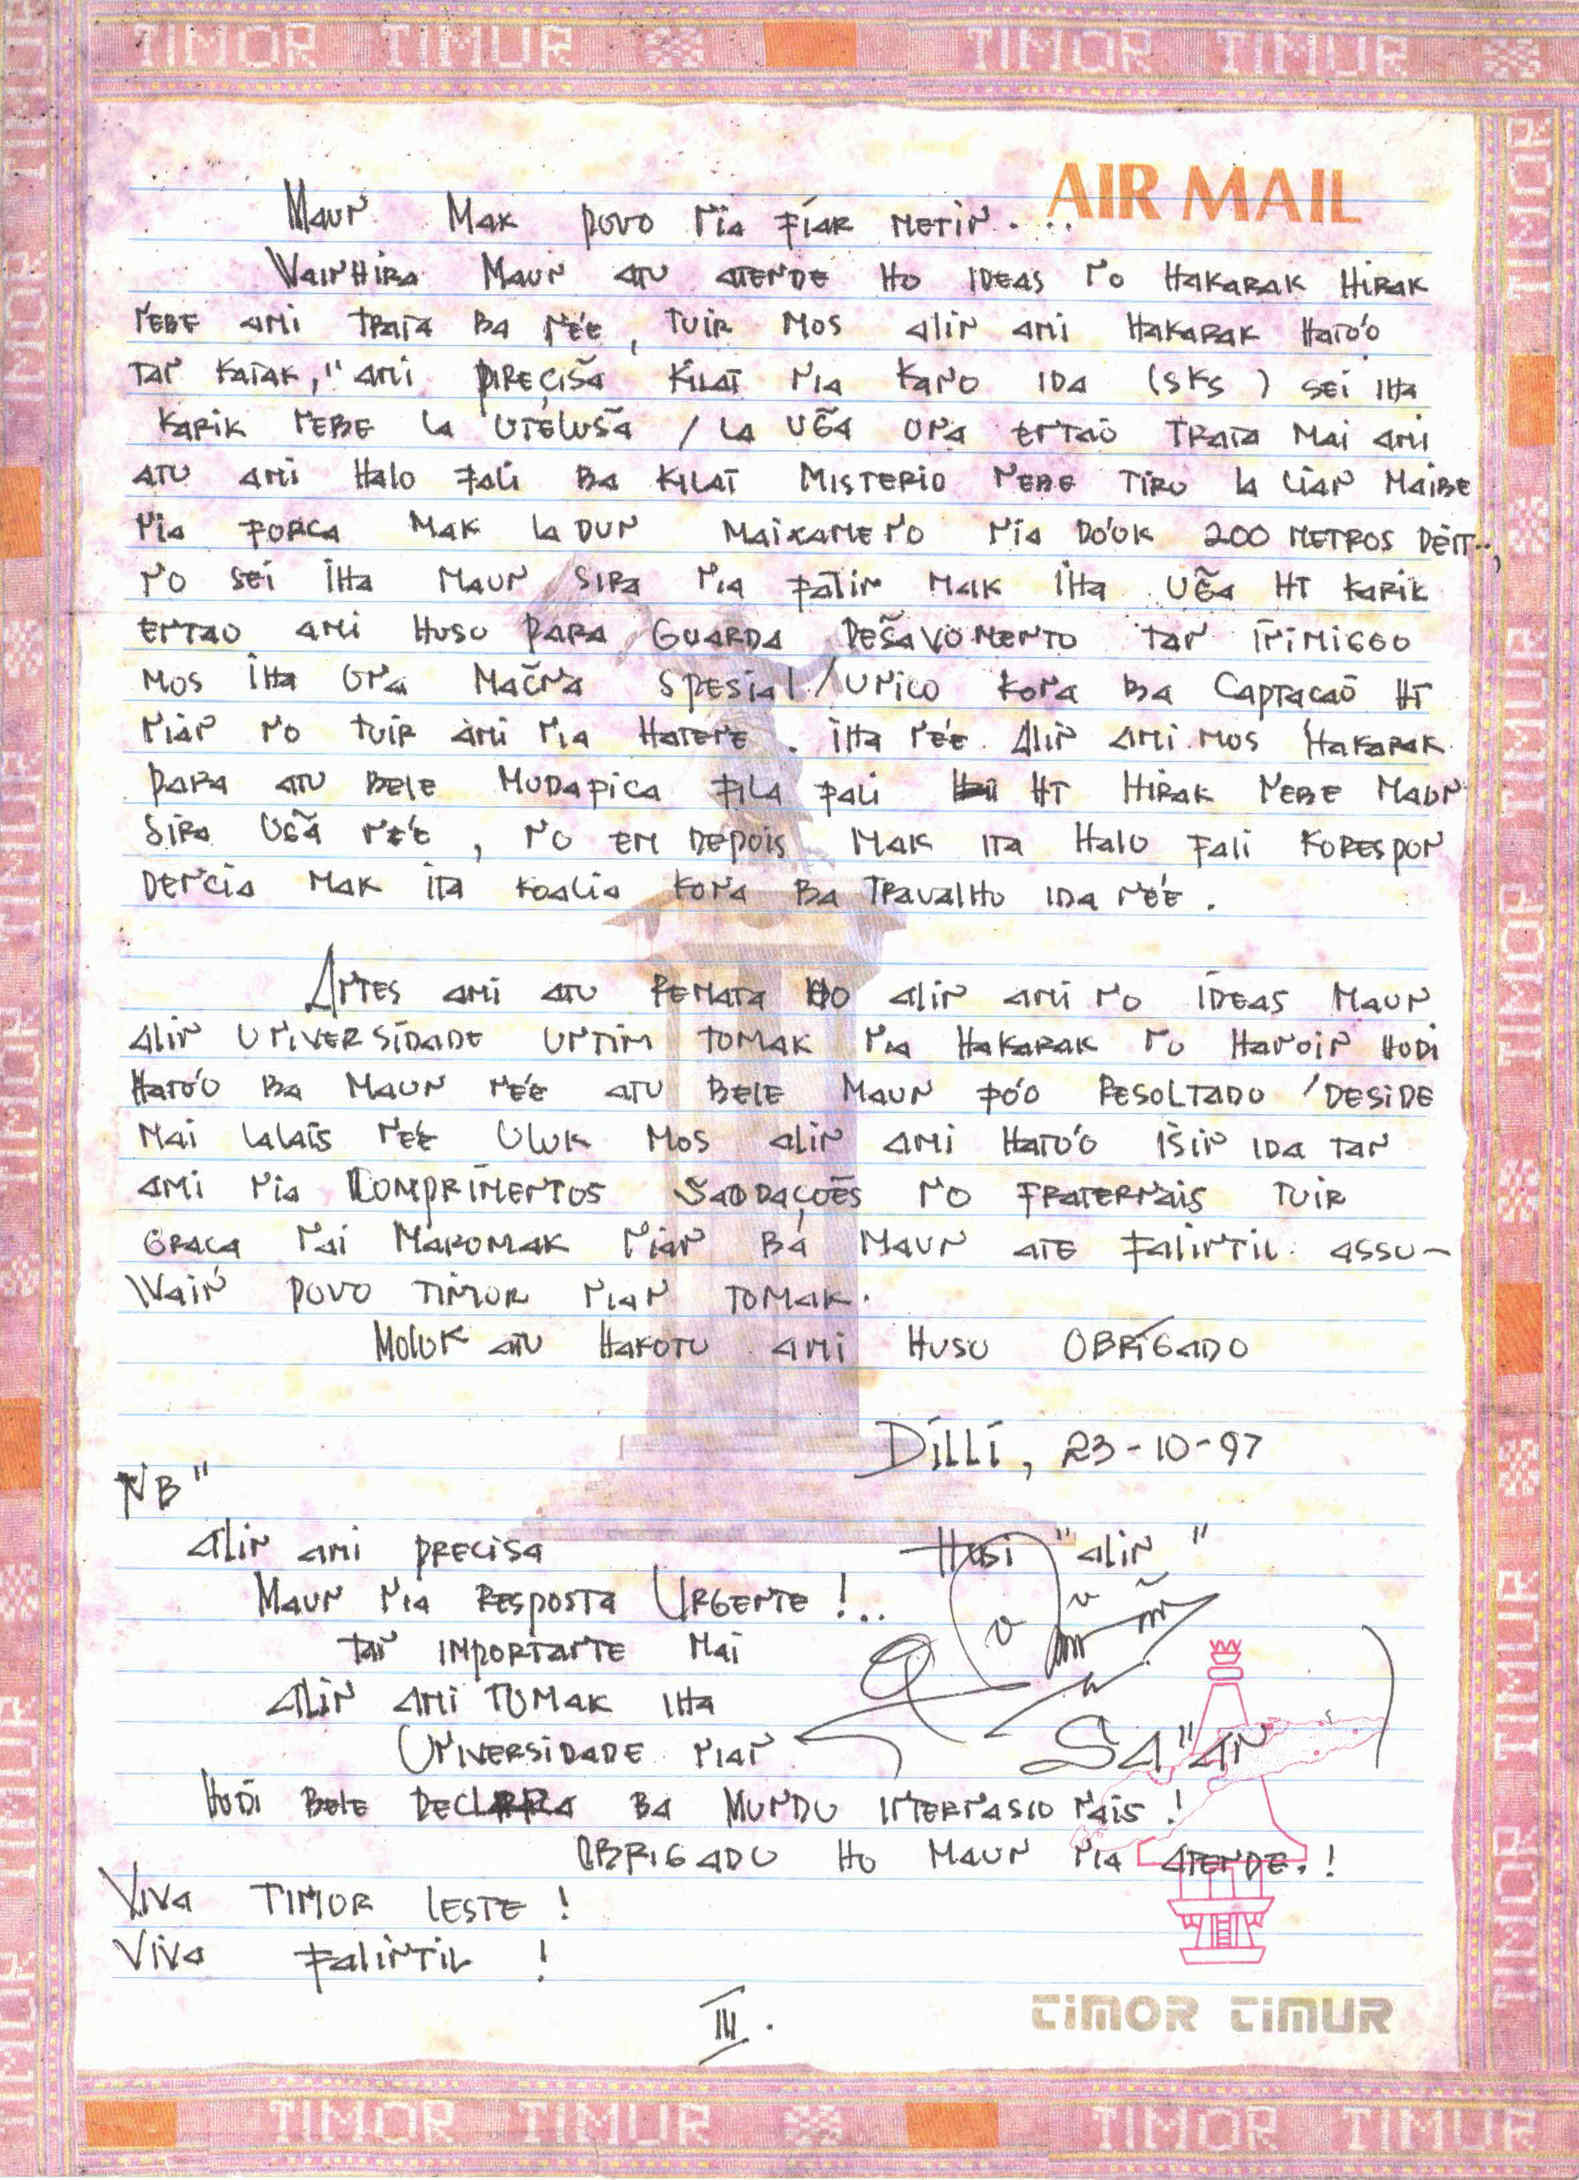 TIMOR TIMUR TIMOR TIMUR
AIR MAIL
Maun Mak povo nia fíar metin . . .
Wainhira Maun atu atende ho ideas no hakarak hirak
nebe ami trata ba né'e, tuir mos alin ami hakarak hato'o
tan katak, " ami preçisa kilat nia kano ida (SKS) sei iha
karik nebe la utélusã / la uẽa ona entaõ trata mai ami
atu ami halo fali ba kilat misterio nebe tiru la lian maibe
nia forca mak la dun maixameno nia do'ok 200 metros déit..,
no sei iha maun sira nia fatin mak iha uẽa HT karik
entao ami huso para guarda desavomento tan inimigoo
mos iha ona mačna spesial / unico kona ba captacaõ HT
nian no tuir ami nia hatene . iha né'e alin ami mos hakarak
para atu bele mudafica fila fali HT hirak nebe maun
sira usã né'e , no em depois mak ita halo fali korespon
dencia mak ita koalia kona ba travalho ida né'e .
Antes ami atu remata ho alin ami no ídeas maun
alin universídade untim tomak nia hakarak no hanoin hodi
hato'o ba maun né'e atu bele maun fó'o resoltado / deside
mai lalais né'e uluk mos alin ami hato'o isin ida tan
ami nia comprímentos saodaçoẽs no fraternais tuir
graca nai maromak nian ba maun ate falintil assu-
wain povo timor nian tomak.
Moluk atu hakotu ami huso obrígado
Díllí, 23-10-97
NB"
alin ami precisa
Husi "alin"
Maun nia resposta urgente !..
tan importante mai
alin ami tomak iha
Sa"an
Universidade nian
hodi bele declara ba mundu internasionais !
obrigado ho maun nia atende. !
Viva Timor Leste !
Viva Falintil !
III.
TIMOR TIMUR
TIMOR TIMUR TIMOR TIMUR